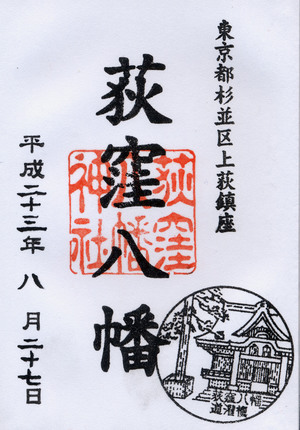 東京都杉並区上荻鎮座
荻窪八幡
荻窪
八幡
神社
平成二十三年 八 月二十七日
荻窪八幡